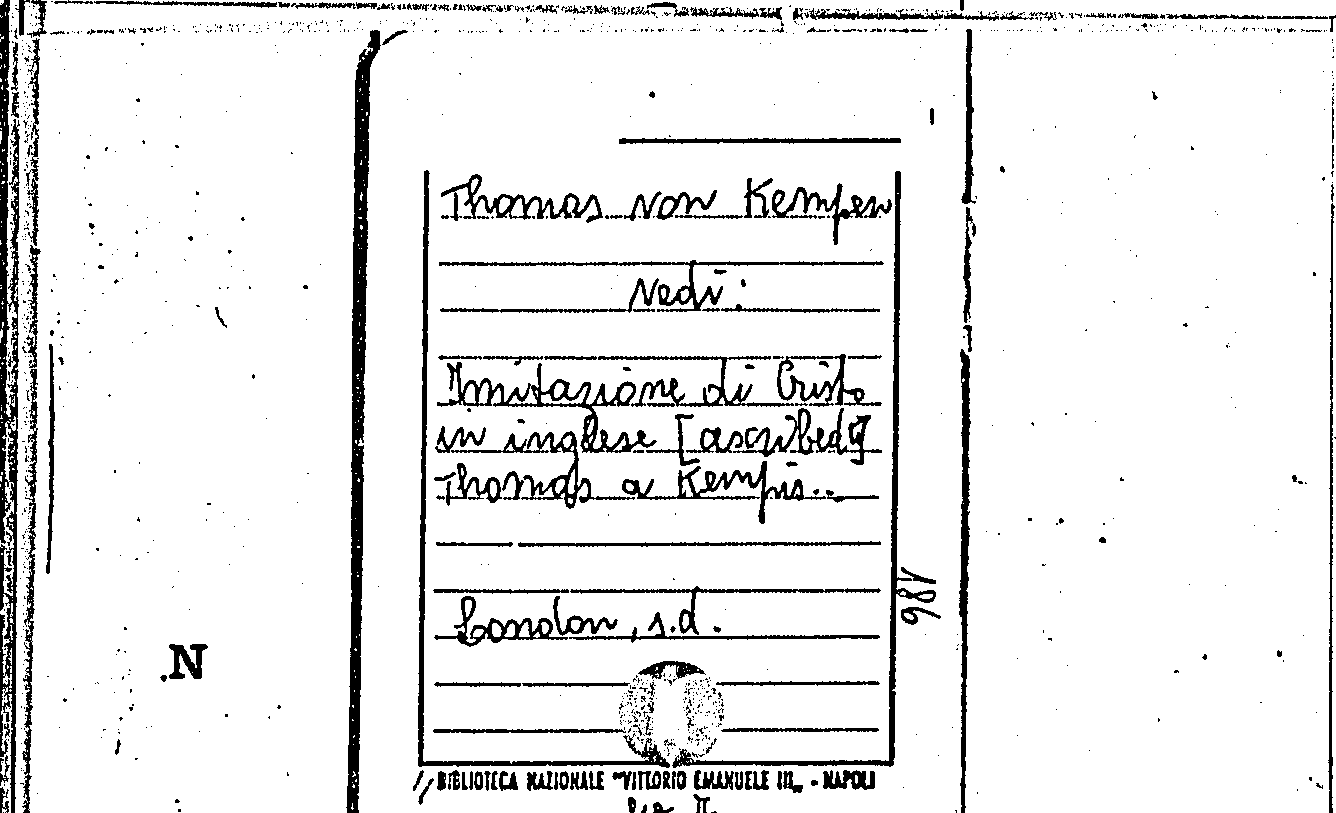 Thomas von Kempen
Vedi:
Imitazione di Cristo
in inglese [ascribed]
Thomas a Kempis...
London, s.d.
.N
BIBLIOTECA NAZIONALE "VITTORIO EMANUELE III" - NAPOLI